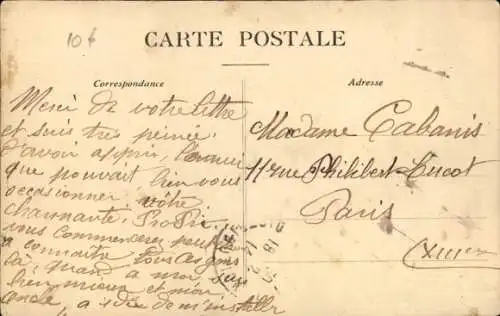 10 f
CARTE POSTALE
Correspondance
Adresse
Merci de votre lettre
et suis très peinée
d'avoir appris, l'ennui
que pouvait bien vous
occasionner votre
charmante
vous commencez
a connaitre
là quand a moi,
bien mieux et mon
a idée de m'installer
Madame Cabanis
11 rue Philibert-Lucot
Paris
XIIIe